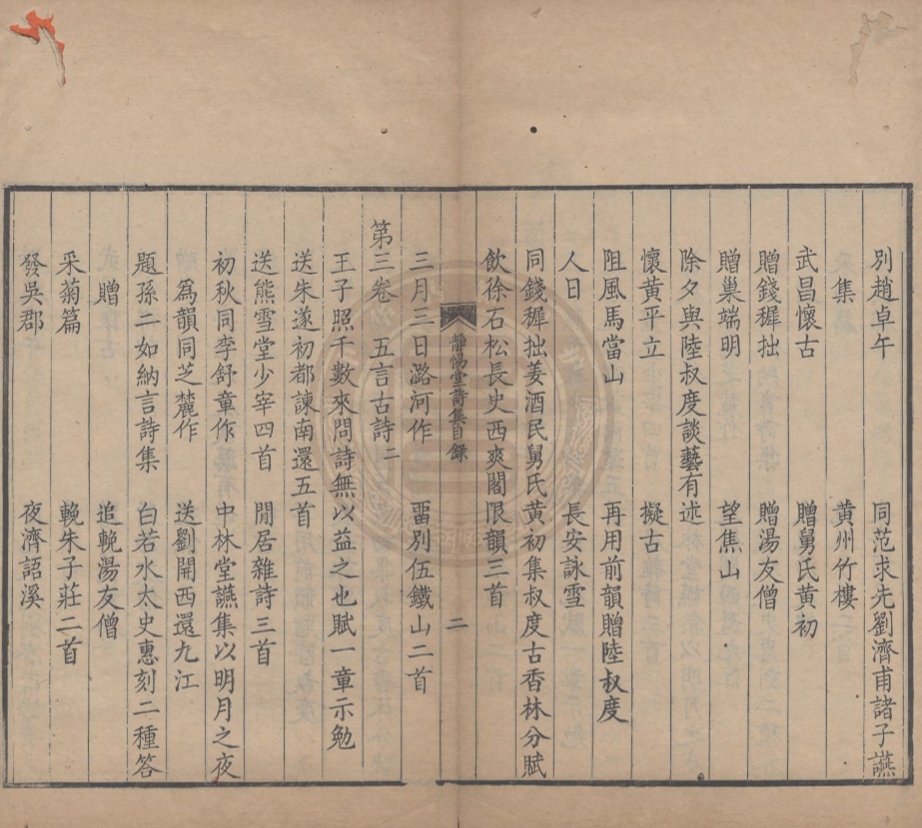 別趙卓午　同范求先劉濟甫諸子讌
集　黃州竹樓
武昌懷古　贈舅氏黃初
贈錢穉拙　贈湯友僧
贈巢端明　望焦山
除夕與陸叔度談藝有述
懷黃平立　擬古
阻風馬當山　再用前韻贈陸叔度
人日　長安詠雪
同錢穉拙姜酒民舅氏黃初集叔度古香林分賦
飲徐石松長史西爽閣限韻三首
靜惕堂詩集目錄　二
三月三日潞河作　畱別伍鐵山二首
第三卷　五言古詩二
王子照千數來問詩無以益之也賦一章示勉
送朱遂初都諫南還五首
送熊雪堂少宰四首　閒居雜詩三首
初秋同李舒章作　中林堂讌集以明月之夜
為韻同芝麓作　送劉開西還九江
題孫二如納言詩集　白若水太史惠刻二種答
贈　追輓湯友僧
采菊篇　輓朱子莊二首
發吳郡　夜濟語溪